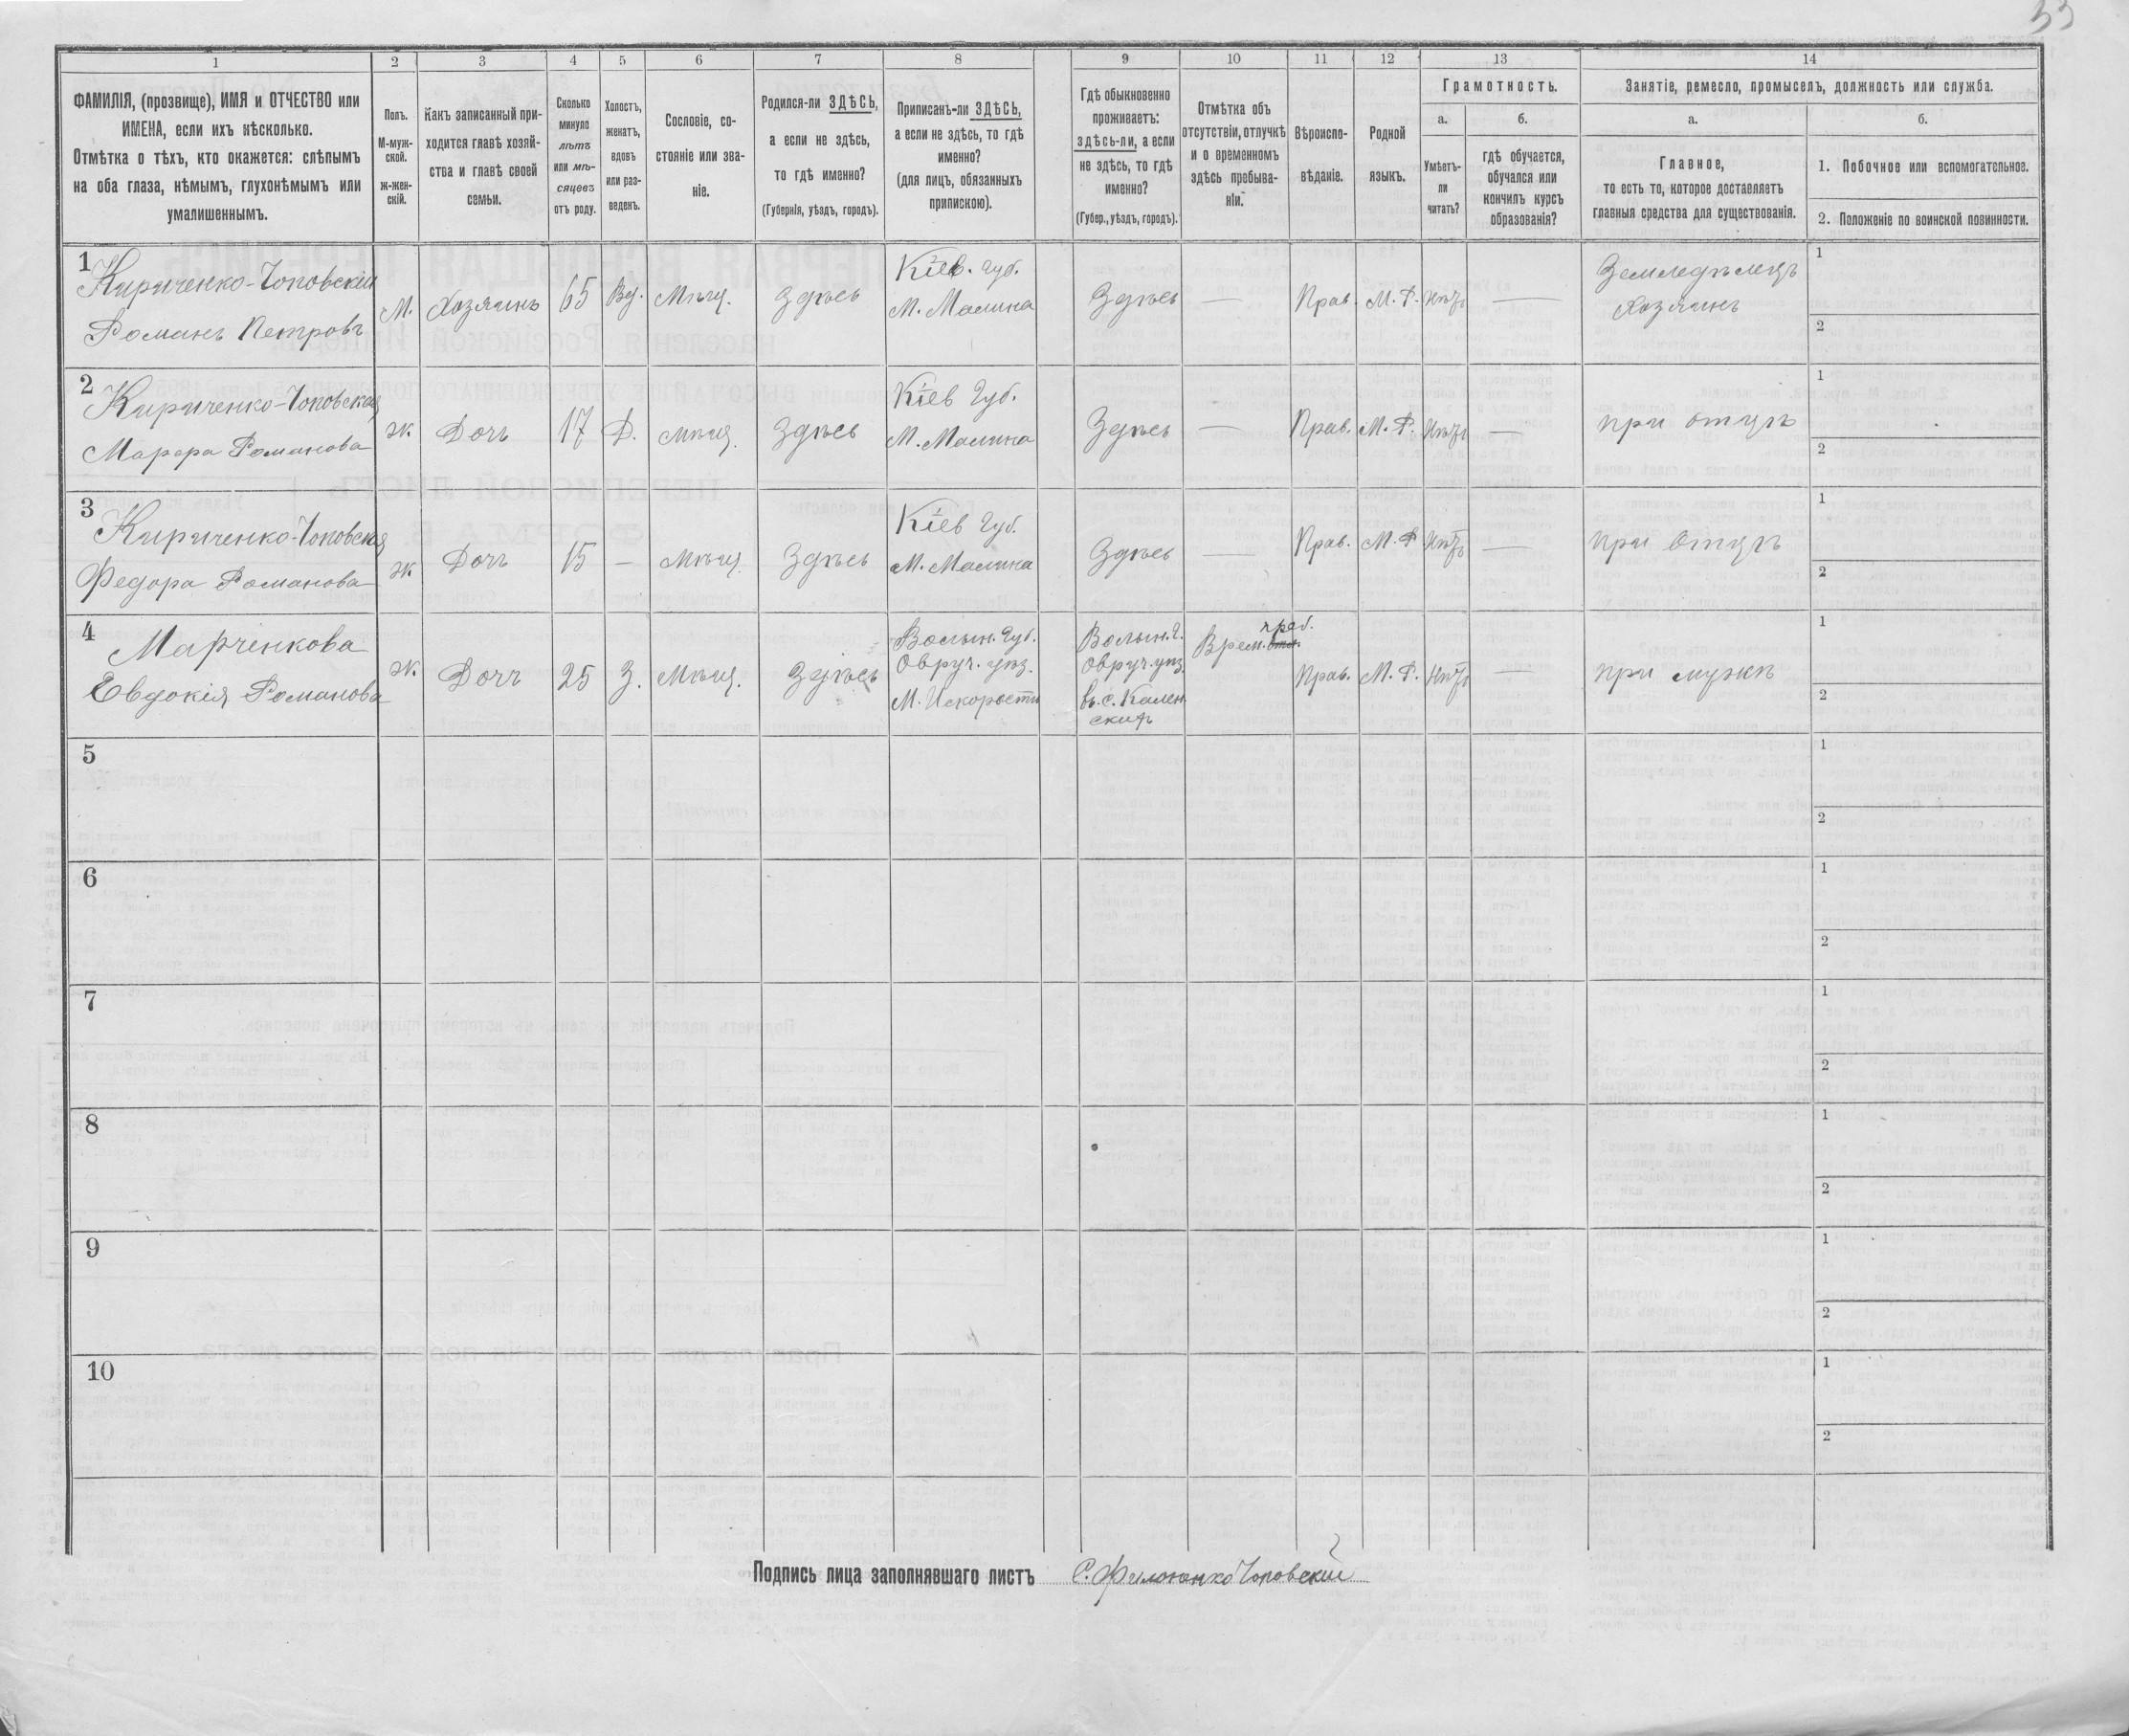 33
1 2 3 4 5 6 7 8 9 10 11 12 13 14
ФАМИЛІЯ, (прозвище), ИМЯ и ОТЧЕСТВО или
ИМЕНА, если ихъ нѣсколько.
Отмѣтка о тѣхъ, кто окажется: слѣпымъ
на оба глаза, нѣмымъ, глухонѣмымъ или
умалишеннымъ.
Полъ.
М-муж-
ской.
ж-жен-
скій.
Какъ записанный при-
ходится главѣ хозяй-
ства и главѣ своей
семьи.
Сколько
минуло
лѣтъ
или мѣ-
сяцевъ
отъ роду.
Холостъ,
женатъ,
вдовъ
или раз-
веденъ.
Сословіе, со-
стояніе или зва-
ніе.
Родился-ли ЗДѢСЬ,
а если не здѣсь,
то гдѣ именно?
(Губернія, уѣздъ, городъ).
Приписанъ-ли ЗДѢСЬ,
а если не здѣсь, то гдѣ
именно?
(для лицъ, обязанныхъ
припискою).
Гдѣ обыкновенно
проживаетъ:
здѣсь-ли, а если
не здѣсь, то гдѣ
именно?
(Губер., уѣздъ, городъ).
Отмѣтка объ
отсутствіи, отлучкѣ
и о временномъ
здѣсь пребыва-
ніи.
Вѣроиспо-
вѣданіе.
Родной
языкъ.
Грамотность.
а.
Умѣетъ-
ли
читать?
б.
гдѣ обучается,
обучался или
кончилъ курсъ
образованія?
Занятіе, ремесло, промыселъ, должность или служба.
а.
Главное,
то есть то, которое доставляетъ
главныя средства для существованія.
б.
1. Побочное или вспомогательное.
2. Положеніе по воинской повинности.
1
Кириченко-Чоповскій
Романъ Петровъ
М.
Хозяинъ
65
Вд.
Мѣщ.
Здѣсь
Кіев. Губ.
М. Малина
Здѣсь
—
Прав.
М. Р.
Нѣтъ
—
Земледѣлецъ
Хозяинъ
1
2
2
Кириченко-Чоповская
Марфа Романова
ж.
Дочь
17
Д.
Мѣщ.
Здѣсь
Кіев Губ.
М. Малина
Здѣсь
—
Прав.
М. Р.
Нѣтъ
—
при отцѣ
1
2
3
Кириченко-Чоповская
Федора Романова
ж.
Дочь
15
—
Мѣщ.
Здѣсь
Кіев Губ.
М. Малина
Здѣсь
—
Прав.
М. Р.
Нѣтъ
—
при Отцѣ
1
2
4
Марченкова
Евдокія Романова
ж.
Дочь
25
З.
Мѣщ.
Здѣсь
Волын. Губ.
Овруч. уѣз.
М. Искорости
Волын. Г.
Овруч. уѣз.
въ с. Кален
скихъ
преб.
Врем.
Прав.
М. Р.
Нѣтъ
—
при мужѣ
1
2
5
1
2
6
1
2
7
1
2
8
1
2
9
1
2
10
1
2
Подпись лица заполнявшаго листъ С. Филоненко Чоповскій